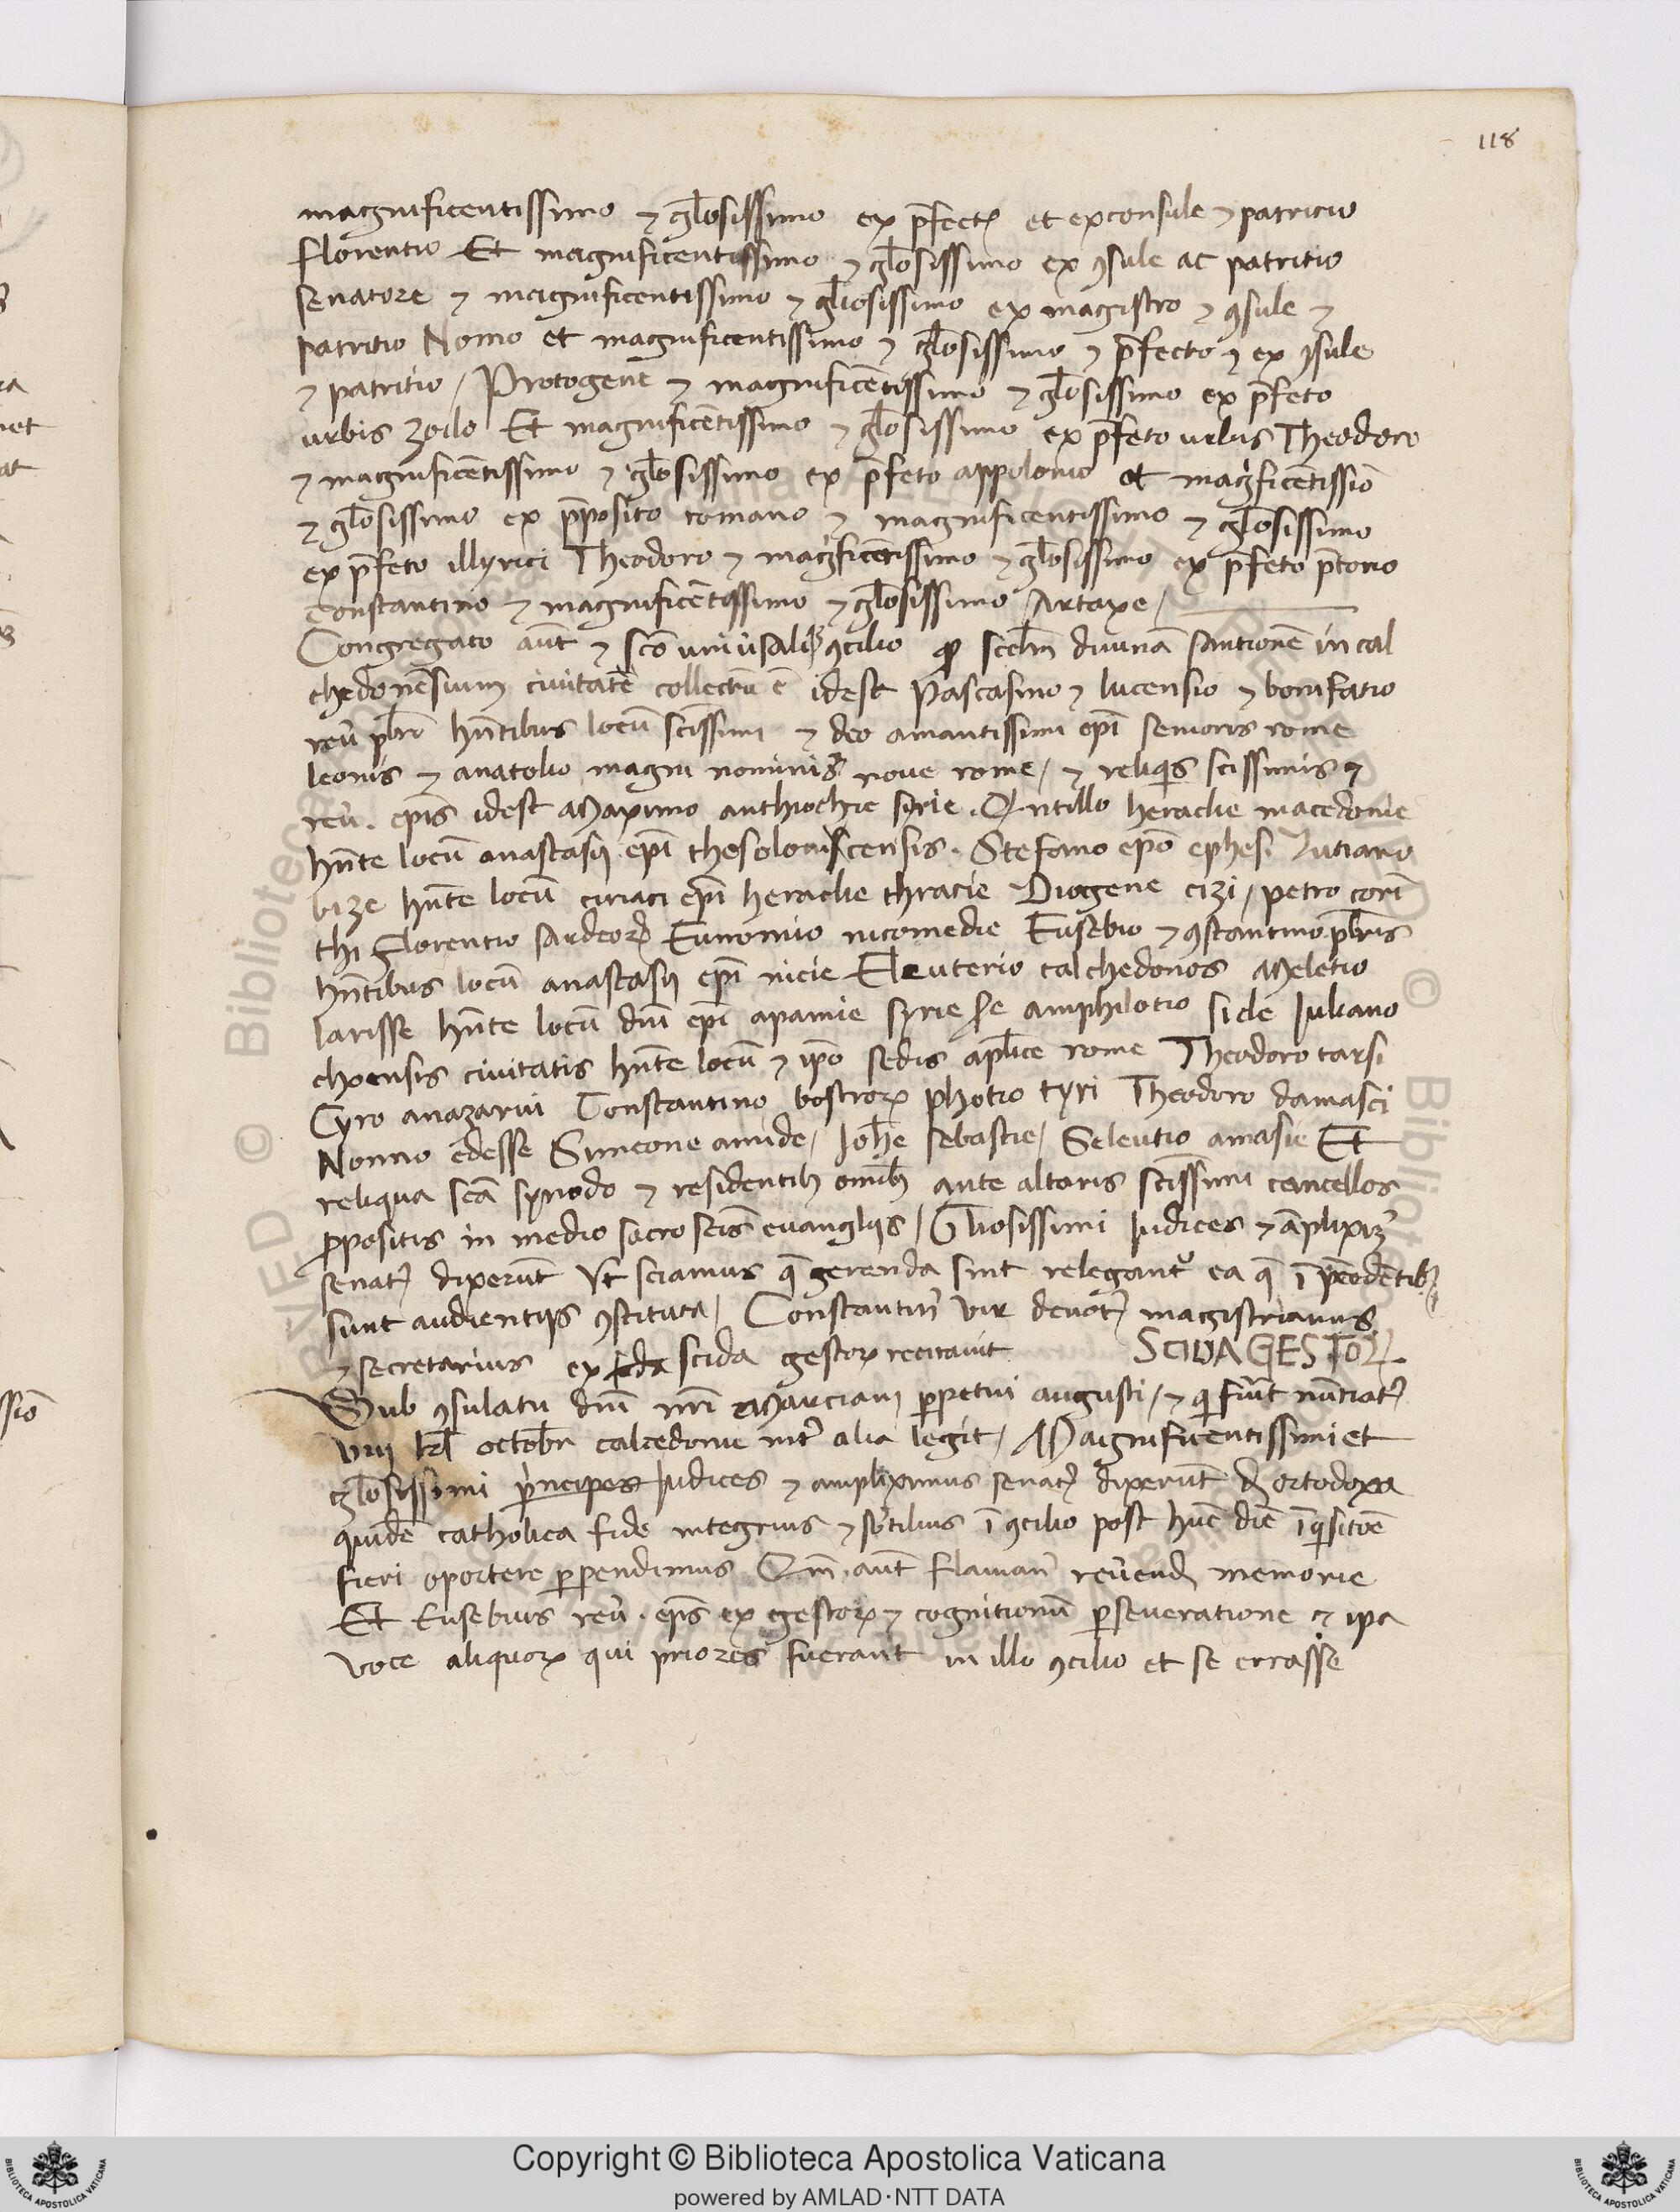 118
magnificentissimo ⁊ gl̄osissimo ex p̄fectꝭ et exconsule ⁊ patricio
florentio Et magnificentissimo ⁊ gl̄osissimo ex ꝯsule ac patritio
senatore ⁊ magnificentissimo ⁊ gl̄iosissimo ex magistro ⁊ ꝯsule ⁊
patritio Nomo et magnificentissimo ⁊ gl̄osissimo ⁊ p̄fecto ⁊ ex ꝯsule
⁊ patritio / Protogene ⁊ magnificētissimo ⁊ gl̄osissimo ex p̄feto
urbis zoilo Et magnificētissimo ⁊ gl̄osissimo ex p̄feto urbis Theodoro
⁊ magnificētissimo ⁊ gl̄osissimo ex p̄feto appolonio et magⁱficētissīo
⁊ gl̄osissimo ex p̄posito romano ⁊ magnificentissimo ⁊ gl̄osissimo
ex p̄feto illyrici Theodoro ⁊ magⁱficētissimo ⁊ gl̄osissimo ex p̄feto p̄torio
Constantino ⁊ magnificētissimo ⁊ gl̄osissimo Artaxe /
Congregato aūt ⁊ scō uniusali ꝯcilio divinā santionē in cal
chedonēsium civitatē collectū ē idest Pascasino ⁊ lucensio ⁊ bonifatio
reū p̄bri hn̄tibus locū scīssimi ⁊ deo amantissimi ep̄i senioris rome
leonis ⁊ anatolio magni nominis nove rome / ⁊ reliqis scissimis ⁊
reū. ep̄is idest Maximo anthiochie syrie. Qntillo heraclie macedonie
hn̄te locū anastasij ep̄i thesolonicensis. Stefano ep̄o ephesi lutiano
bize hn̄te locū ciriaci ep̄i heraclie thracie Diogene cizi / petro corī
thi Florentio sardeoꝝ Eunomio nicomedie Eusebio ⁊ ꝯstantino p̄bris
hn̄tibus locū anastasij ep̄i nicie Eleuterio calchedonos Meletio
larisse hn̄te locū dni ep̄i apamie syrie se amphilotio side Iuliano
choensis civitatis hn̄te locū ⁊ ip̄o sedis apl̄ice rome Theodoro tarsi
Cyro anazarvi Constantino bostroꝝ photio tyri Theodoro damasci
Nonno edesse Simeone amide / Ioh̄e sebastie / Seleutio amasie Et
reliqua scā synodo ⁊ residentib omib ante altaris scīssimi cancellos
ꝓpositis in medio sacroscis evanglijs / Gl̄iosissimi Iudices ⁊ āplixiꝫ
senatꝰ dixerūt Ut sciamus q̄ gerenda sint relegantᷣ ea q̄ ī p̄cedētibꝫ
sunt audientijs ꝯstituta / Constantinꝰ vir devotꝰ magistrianus
⁊ secretarius ex scida gestoꝝ recitavit SCIDA GESTOꝜ.
Sub ꝯsulatu dni nri Marciani ꝑpetui augusti / ⁊ qi fūit nūtiatꝰ
viij kl octobr calcedonie intꝰ alia legit / Magnificentissimi et
gl̄osissimi principes Iudices ⁊ amplixmus senatꝰ dixerūt d ortodoxa
quidē catholica fide integrius ⁊ sbtilius ī ꝯcilio post hūc diē īqisitōē
fieri oportere ꝑpendimus Qm̄ aūt flavianꝰ reūend memorie
Et Eusebius reū. ep̄s ex gestoꝝ ⁊ cognitionū ꝑseveratione ⁊ ip̄a
voce aliquoꝝ qui priores fuerant in illo ꝯcilio et se errasse
Copyright © Biblioteca Apostolica Vaticana
powered by AMLAD·NTT DATA